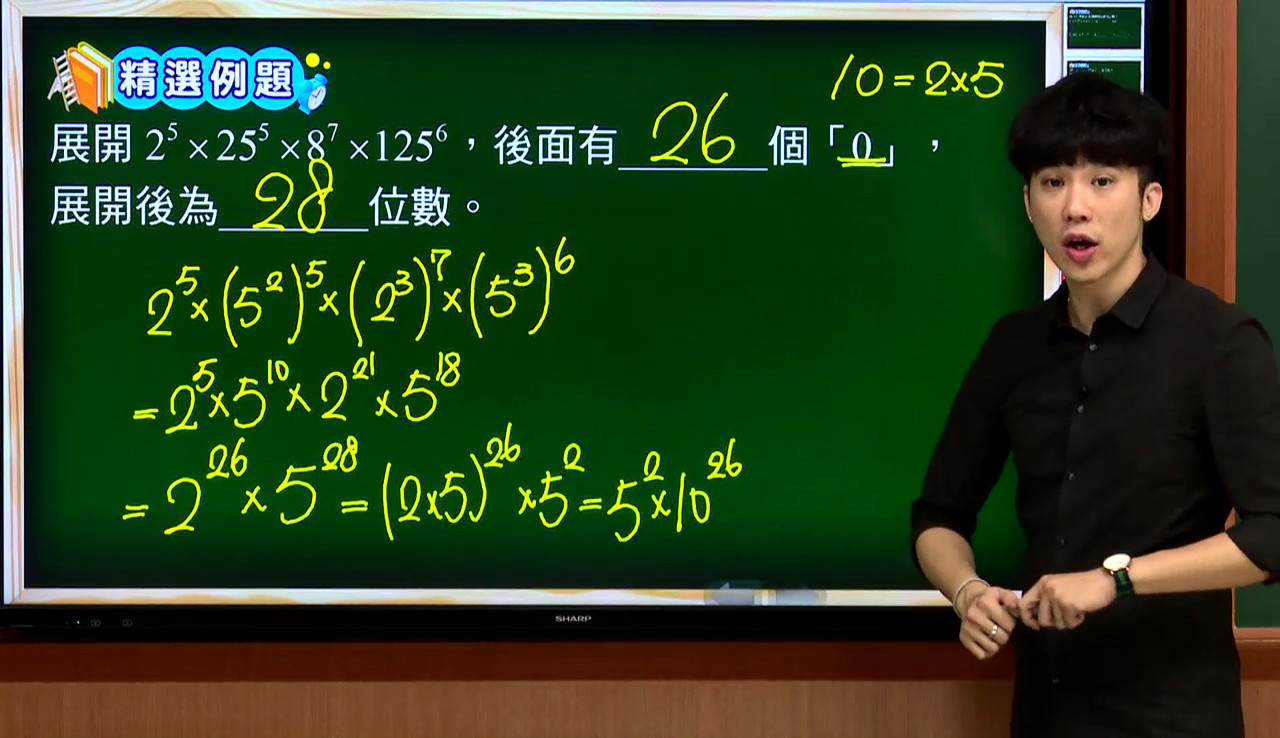 精選例題
10=2×5
展開 2⁵×25⁵×8⁷×125⁶,後面有 26 個「0」,
展開後為 28 位數。
2⁵×(5²)⁵×(2³)⁷×(5³)⁶
=2⁵×5¹⁰×2²¹×5¹⁸
=2²⁶×5²⁸=(2×5)²⁶×5²=5²×10²⁶
SHARP